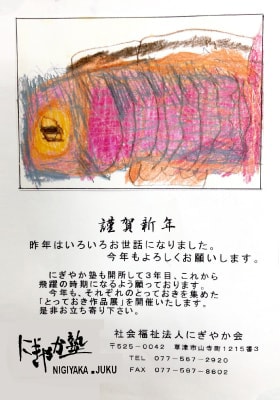 謹賀新年
昨年はいろいろお世話になりました。
今年もよろしくお願いします。
にぎやか塾も開所して3年目、これから
飛躍の時期になるよう願っております。
今年も、それぞれのとっておきを集めた
「とっておき作品展」を開催いたします。
是非お立ち寄り下さい。
にぎやか塾
NIGIYAKA.JUKU
社会福祉法人にぎやか会
〒525-0042 草津市山寺町1215番3
TEL 077-567-2920
FAX 077-567-8602